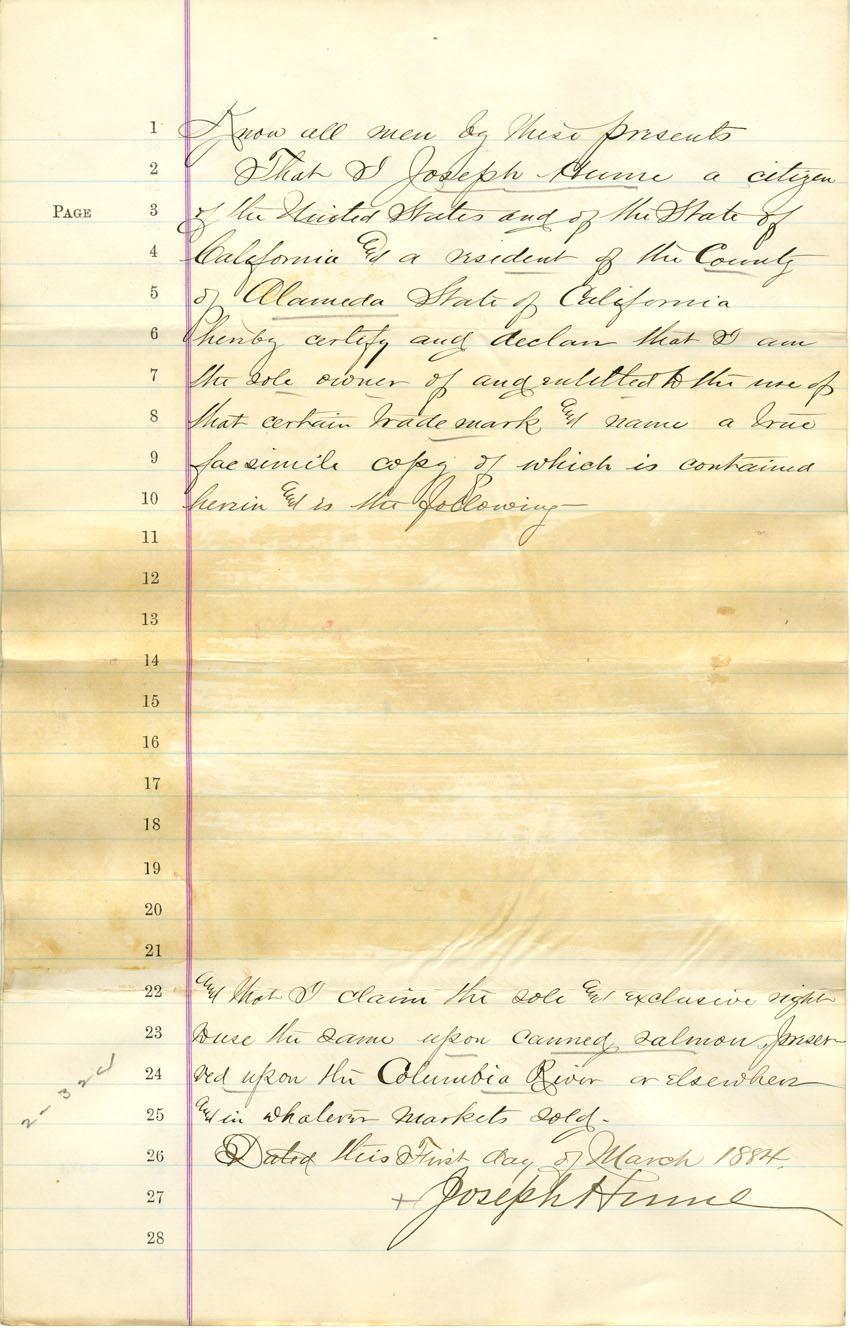 1 Know all men by these presents
2 That I Joseph Hume a citizen
PAGE 3 of the United States and of the State of
4 California and a resident of the County
5 of Alameda State of California
6 hereby certify and declare that I am
7 the sole owner of and entitled to the use of
8 that certain trade mark and name a true
9 facsimile copy of which is contained
10 herein and is the following—
11
12
13
14
15
16
17
18
19
20
21
22 And that I claim the sole and exclusive right
23 to use the same upon canned salmon, preser-
24 ved upon the Columbia River or elsewhere
25 and in whatever markets sold.
26 Dated this First day of March 1884.
27 Joseph Hume
28